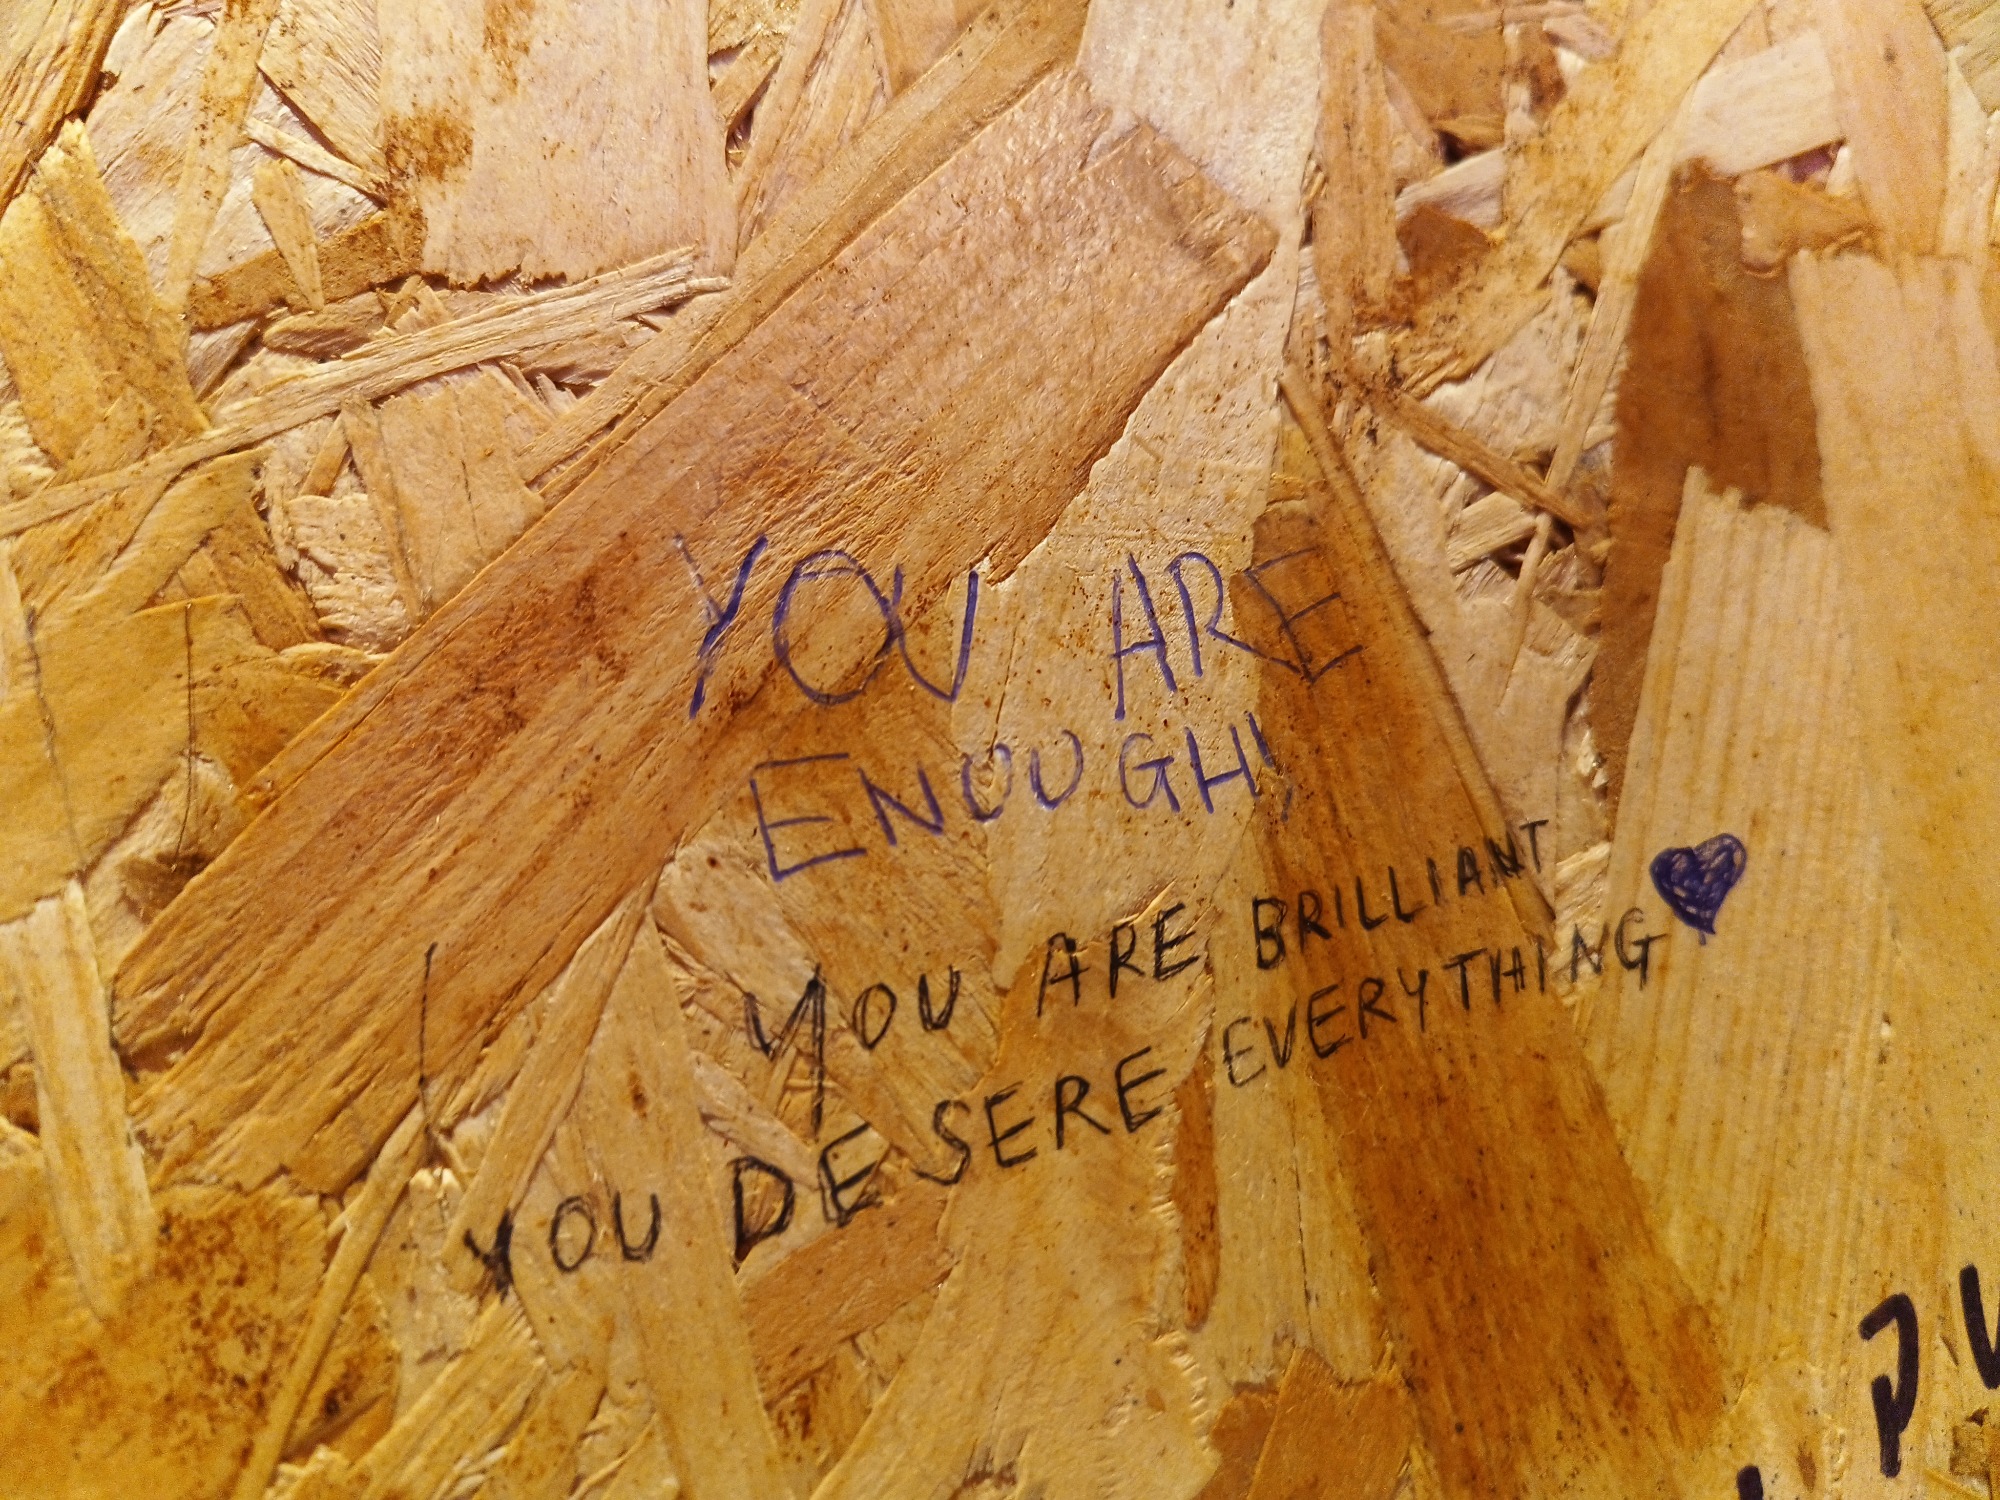 YOU ARE
ENOUGH!
YOU ARE BRILLIANT
YOU DESERE EVERYTHING